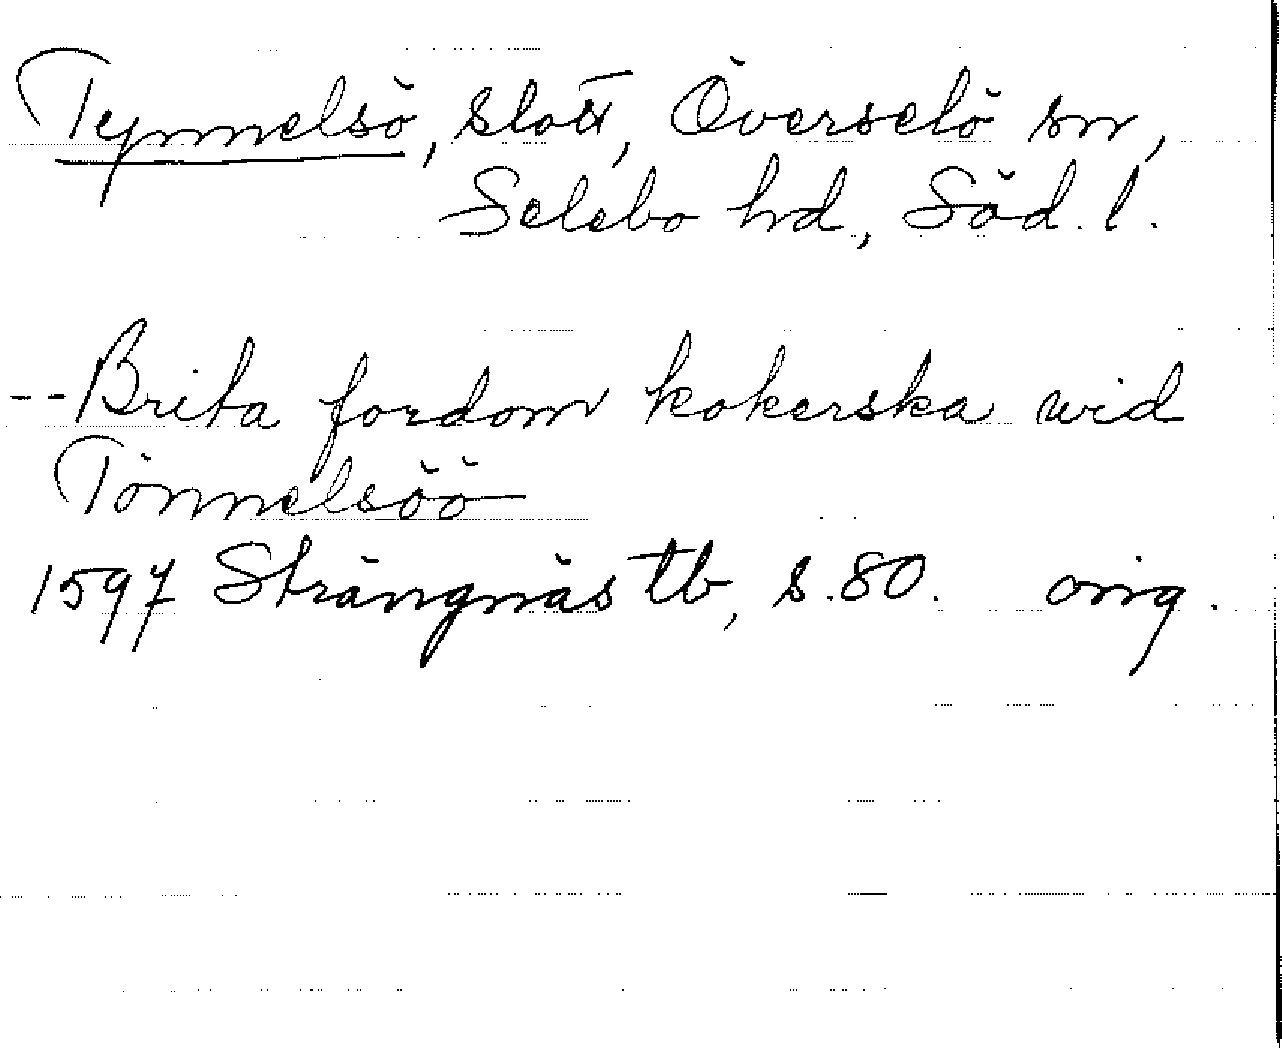 Tynnelsö, slott, Överselö sn,
Selebo hd, Söd. l.
--Brita fordom kokerska wid
Tönnelsöö
1597 Strängnäs tb, s. 80. orig.